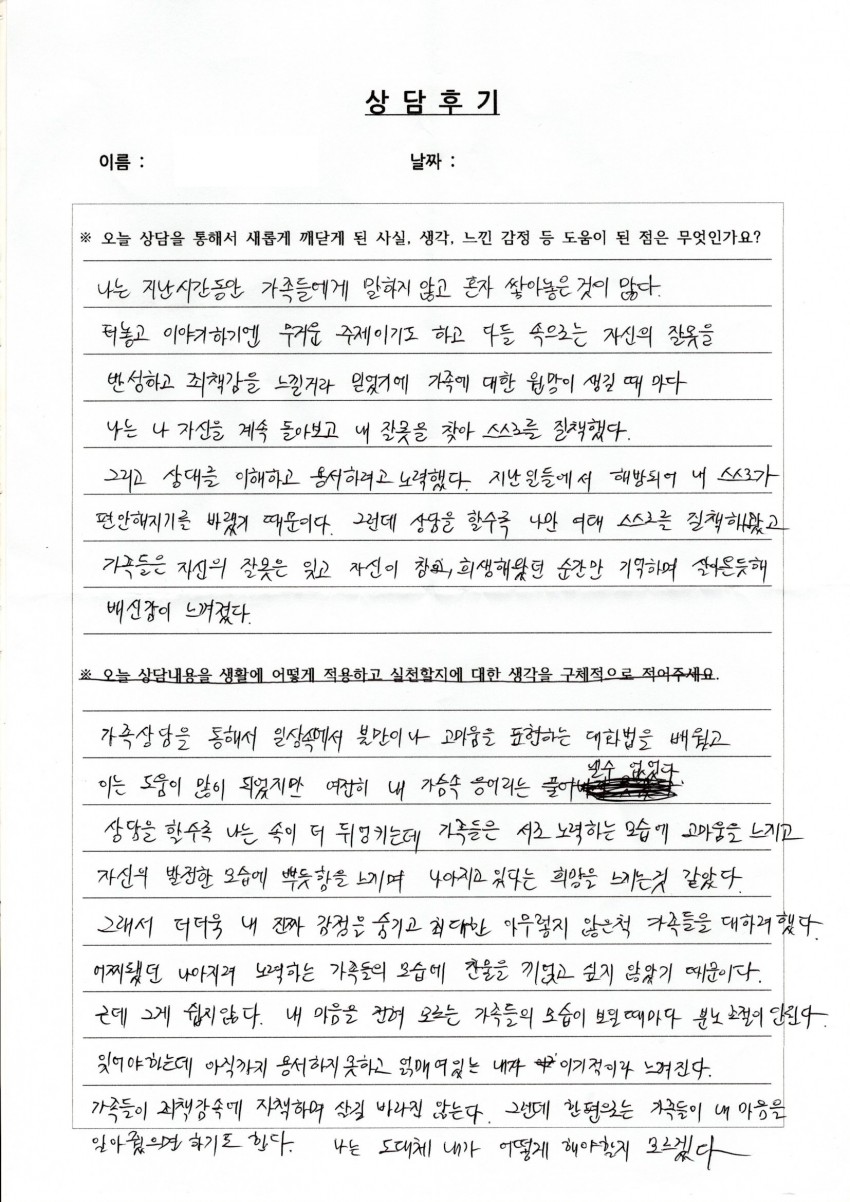 상 담 후 기
이름 :
날짜 :
※ 오늘 상담을 통해서 새롭게 깨닫게 된 사실, 생각, 느낀 감정 등 도움이 된 점은 무엇인가요?
나는 지난시간동안 가족들에게 말하지 않고 혼자 쌓아놓은 것이 많다.
터놓고 이야기하기엔 무거운 주제이기도 하고 다들 속으로는 자신의 잘못을
반성하고 죄책감을 느낄거라 믿었기에 가족에 대한 원망이 생길 때 마다
나는 나 자신을 계속 돌아보고 내 잘못을 찾아 스스로를 질책했다.
그리고 상대를 이해하고 용서하려고 노력했다. 지난일들에서 해방되어 내 스스로가
편안해지기를 바랬기 때문이다. 그런데 상담을 할수록 나만 여태 스스로를 질책해왔고
가족들은 자신의 잘못은 잊고 자신이 참고, 희생해왔던 순간만 기억하며 살아온듯해
배신감이 느껴졌다.
※ 오늘 상담내용을 생활에 어떻게 적용하고 실천할지에 대한 생각을 구체적으로 적어주세요.
가족상담을 통해서 일상속에서 불만이나 고마움을 표현하는 대화법을 배웠고
이는 도움이 많이 되었지만 여전히 내 가슴속 응어리는 풀어낼수 없었다.
상담을 할수록 나는 속이 더 뒤엉키는데 가족들은 서로 노력하는 모습에 고마움을 느끼고
자신의 발전한 모습에 뿌듯함을 느끼며 나아지고 있다는 희망을 느끼는것 같았다.
그래서 더더욱 내 진짜 감정을 숨기고 최대한 아무렇지 않은척 가족들을 대하려했다.
어찌됐던 나아지려 노력하는 가족들의 모습에 찬물을 끼얹고 싶지 않았기 때문이다.
근데 그게 쉽지않다. 내 마음을 전혀 모르는 가족들의 모습이 보일때마다 분노조절이 안된다.
잊어야하는데 아직까지 용서하지못하고 얽매여있는 내가 이기적이라 느껴진다.
가족들이 죄책감속에 자책하며 살길 바라진 않는다. 그런데 한편으로는 가족들이 내 마음을
알아줬으면 하기도 한다. 나는 도대체 내가 어떻게 해야할지 모르겠다